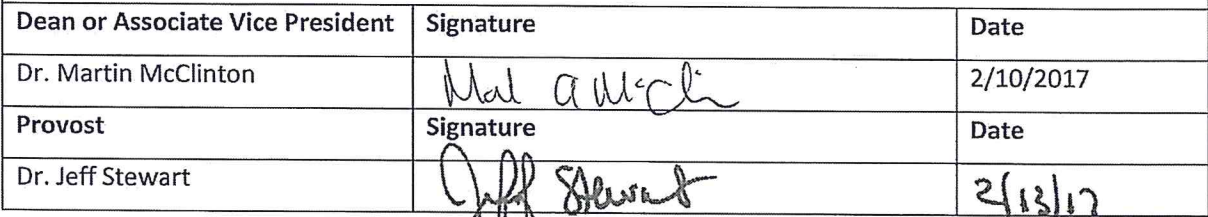 Dean or Associate Vice President Signature Date
Dr. Martin McClinton 2/10/2017
Provost Signature Date
Dr. Jeff Stewart Jeff Stewart 2/13/17